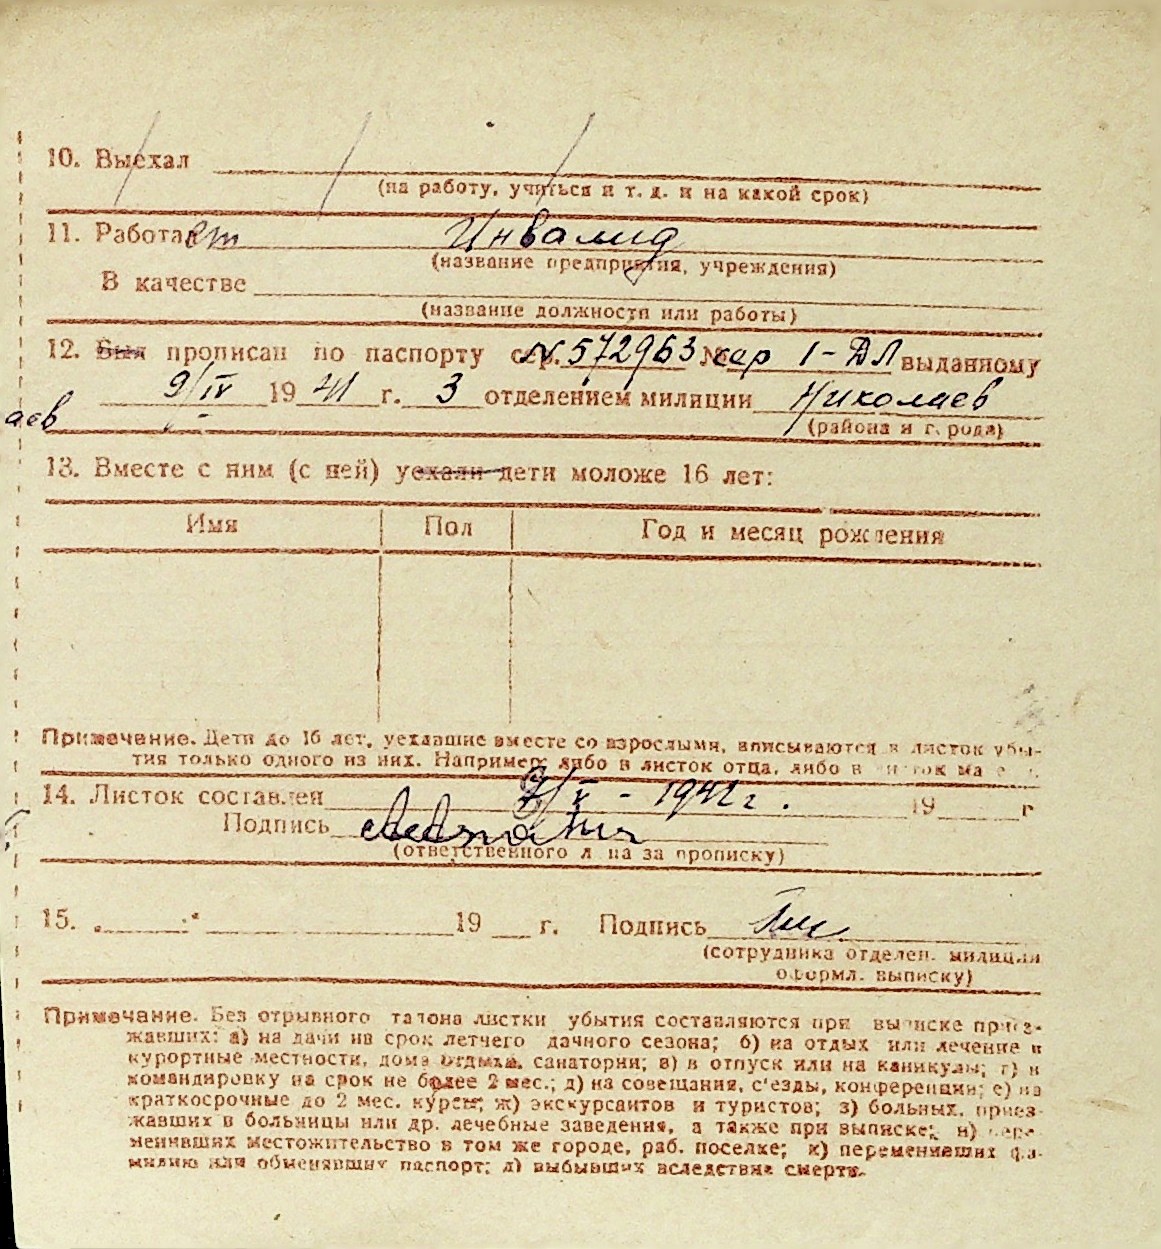 10. Выехал
(на работу, учиться и т. д. и на какой срок)
11. Работает Инвалид
(название предприятия, учреждения)
В качестве
(название должности или работы)
12. Был прописан по паспорту сер. N 572963 № сер 1-ДЛ выданному
9/IV 1941 г. 3 отделением милиции Николаев
аев (района и города)
13. Вместе с ним (с ней) уехали дети моложе 16 лет:
Имя Пол Год и месяц рождения
Примечание. Дети до 16 лет, уехавшие вместе со взрослыми, вписываются в листок убы-
тия только одного из них. Например: либо в листок отца, либо в листок ма
14. Листок составлен /V - 1942 г. 19 г
Подпись
(ответственного лица за прописку)
15. 19 г. Подпись
(сотрудника отделен. милиции
оформл. выписку)
Примечание. Без отрывного талона листки убытия составляются при выписке приез-
жавших: а) на дачи на срок летнего дачного сезона; б) на отдых или лечение в
курортные местности, дома отдыха, санатории; в) в отпуск или на каникулы; г) в
командировку на срок не более 2 мес.; д) на совещания, с'езды, конференции; е) на
краткосрочные до 2 мес. курсы; ж) экскурсантов и туристов; з) больных, приез-
жавших в больницы или др. лечебные заведения, а также при выписке: и) пере-
менивших местожительство в том же городе, раб. поселке; к) переменивших фа-
милию или обменявших паспорт; л) выбывших вследствие смерти.